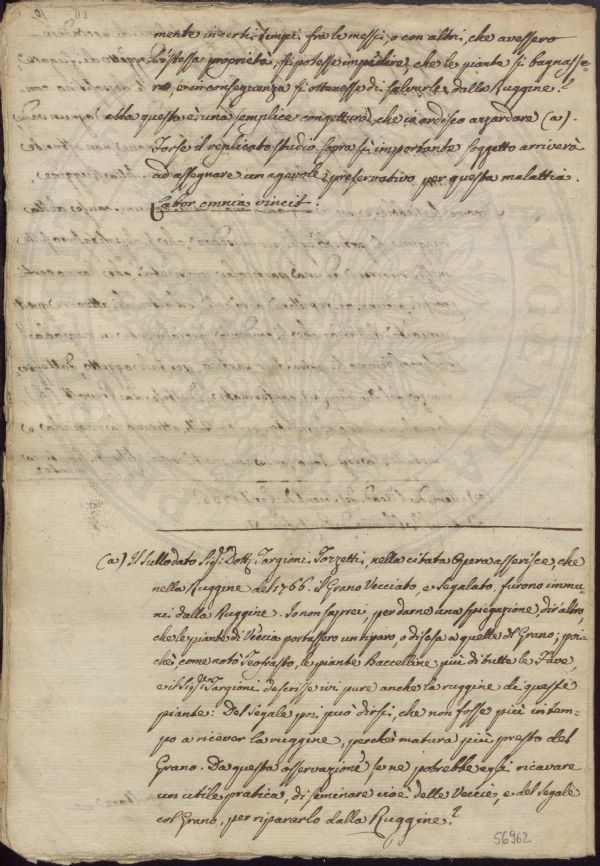 mente in certi tempi fra le messi, o con altri, che avessero
l'istessa proprietà, si potesse impedire, che le piante si bagnasse=
ro, e in conseguenza si ottenesse di salvarle dalla Ruggine?
Ma questa è una semplice congettura, che io ardisco azzardare (a).
Forse il replicato studio sopra sì importante soggetto arriverà
ad assegnare un agevole preservativo per questa malattia.
Labor omnia vincit.
(a) Il sullodato Sig.r Dott. Targioni Tozzetti, nella citata Opera asserisce, che
nella Ruggine del 1766. il Grano Vecciato, e Segalato, furono immu=
ni dalla Ruggine. Io non saprei, per darne una spiegazione, dir altro,
che le piante di Veccia portassero un riparo, o difesa a quelle del Grano; poi=
chè, come notò Teofrasto, le piante Baccelline più di tutte le Fave,
e il Sig.r Targioni descrisse ivi pure anche la ruggine di queste
piante: Del Segale poi, può dirsi, che non fosse più in tem=
po a ricever la ruggine, perchè matura più presto del
Grano. Da questa osservazione, se ne potrebbe egli ricavare
un utile pratica, di seminare cioè delle Veccie, e del Segale
col Grano, per ripararlo dalla Ruggine?
56962